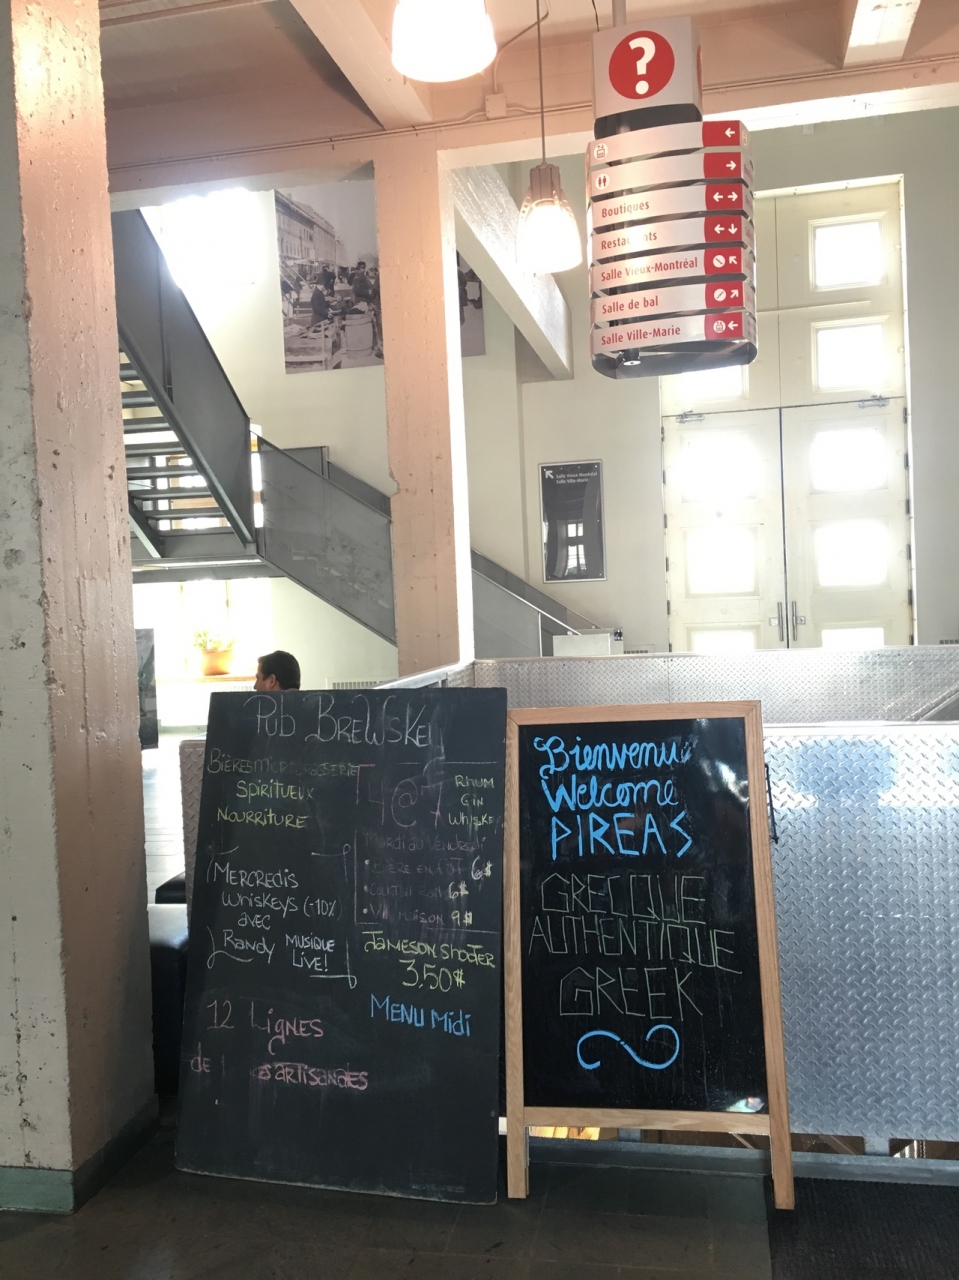 ?
Boutiques
Restaurants
Salle Vieux-Montréal
Salle de bal
Salle Ville-Marie
Salle Vieux-Montréal
Salle Ville-Marie
Pub BreWskey
Bières microbrasserie
Spiritueux
Nourriture
Mercredis
Whiskeys (-10%)
avec
Randy Musique
Live!
12 Lignes
de
artisanales
4@7
Rhum
Gin
Whiske
Mardi au Vendredi
Bière en fût 6$
6$
Maison 9$
Jameson Shooter
3,50$
Menu Midi
Bienvenu
Welcome
PIREAS
GRECQUE
AUTHENTIQUE
GREEK